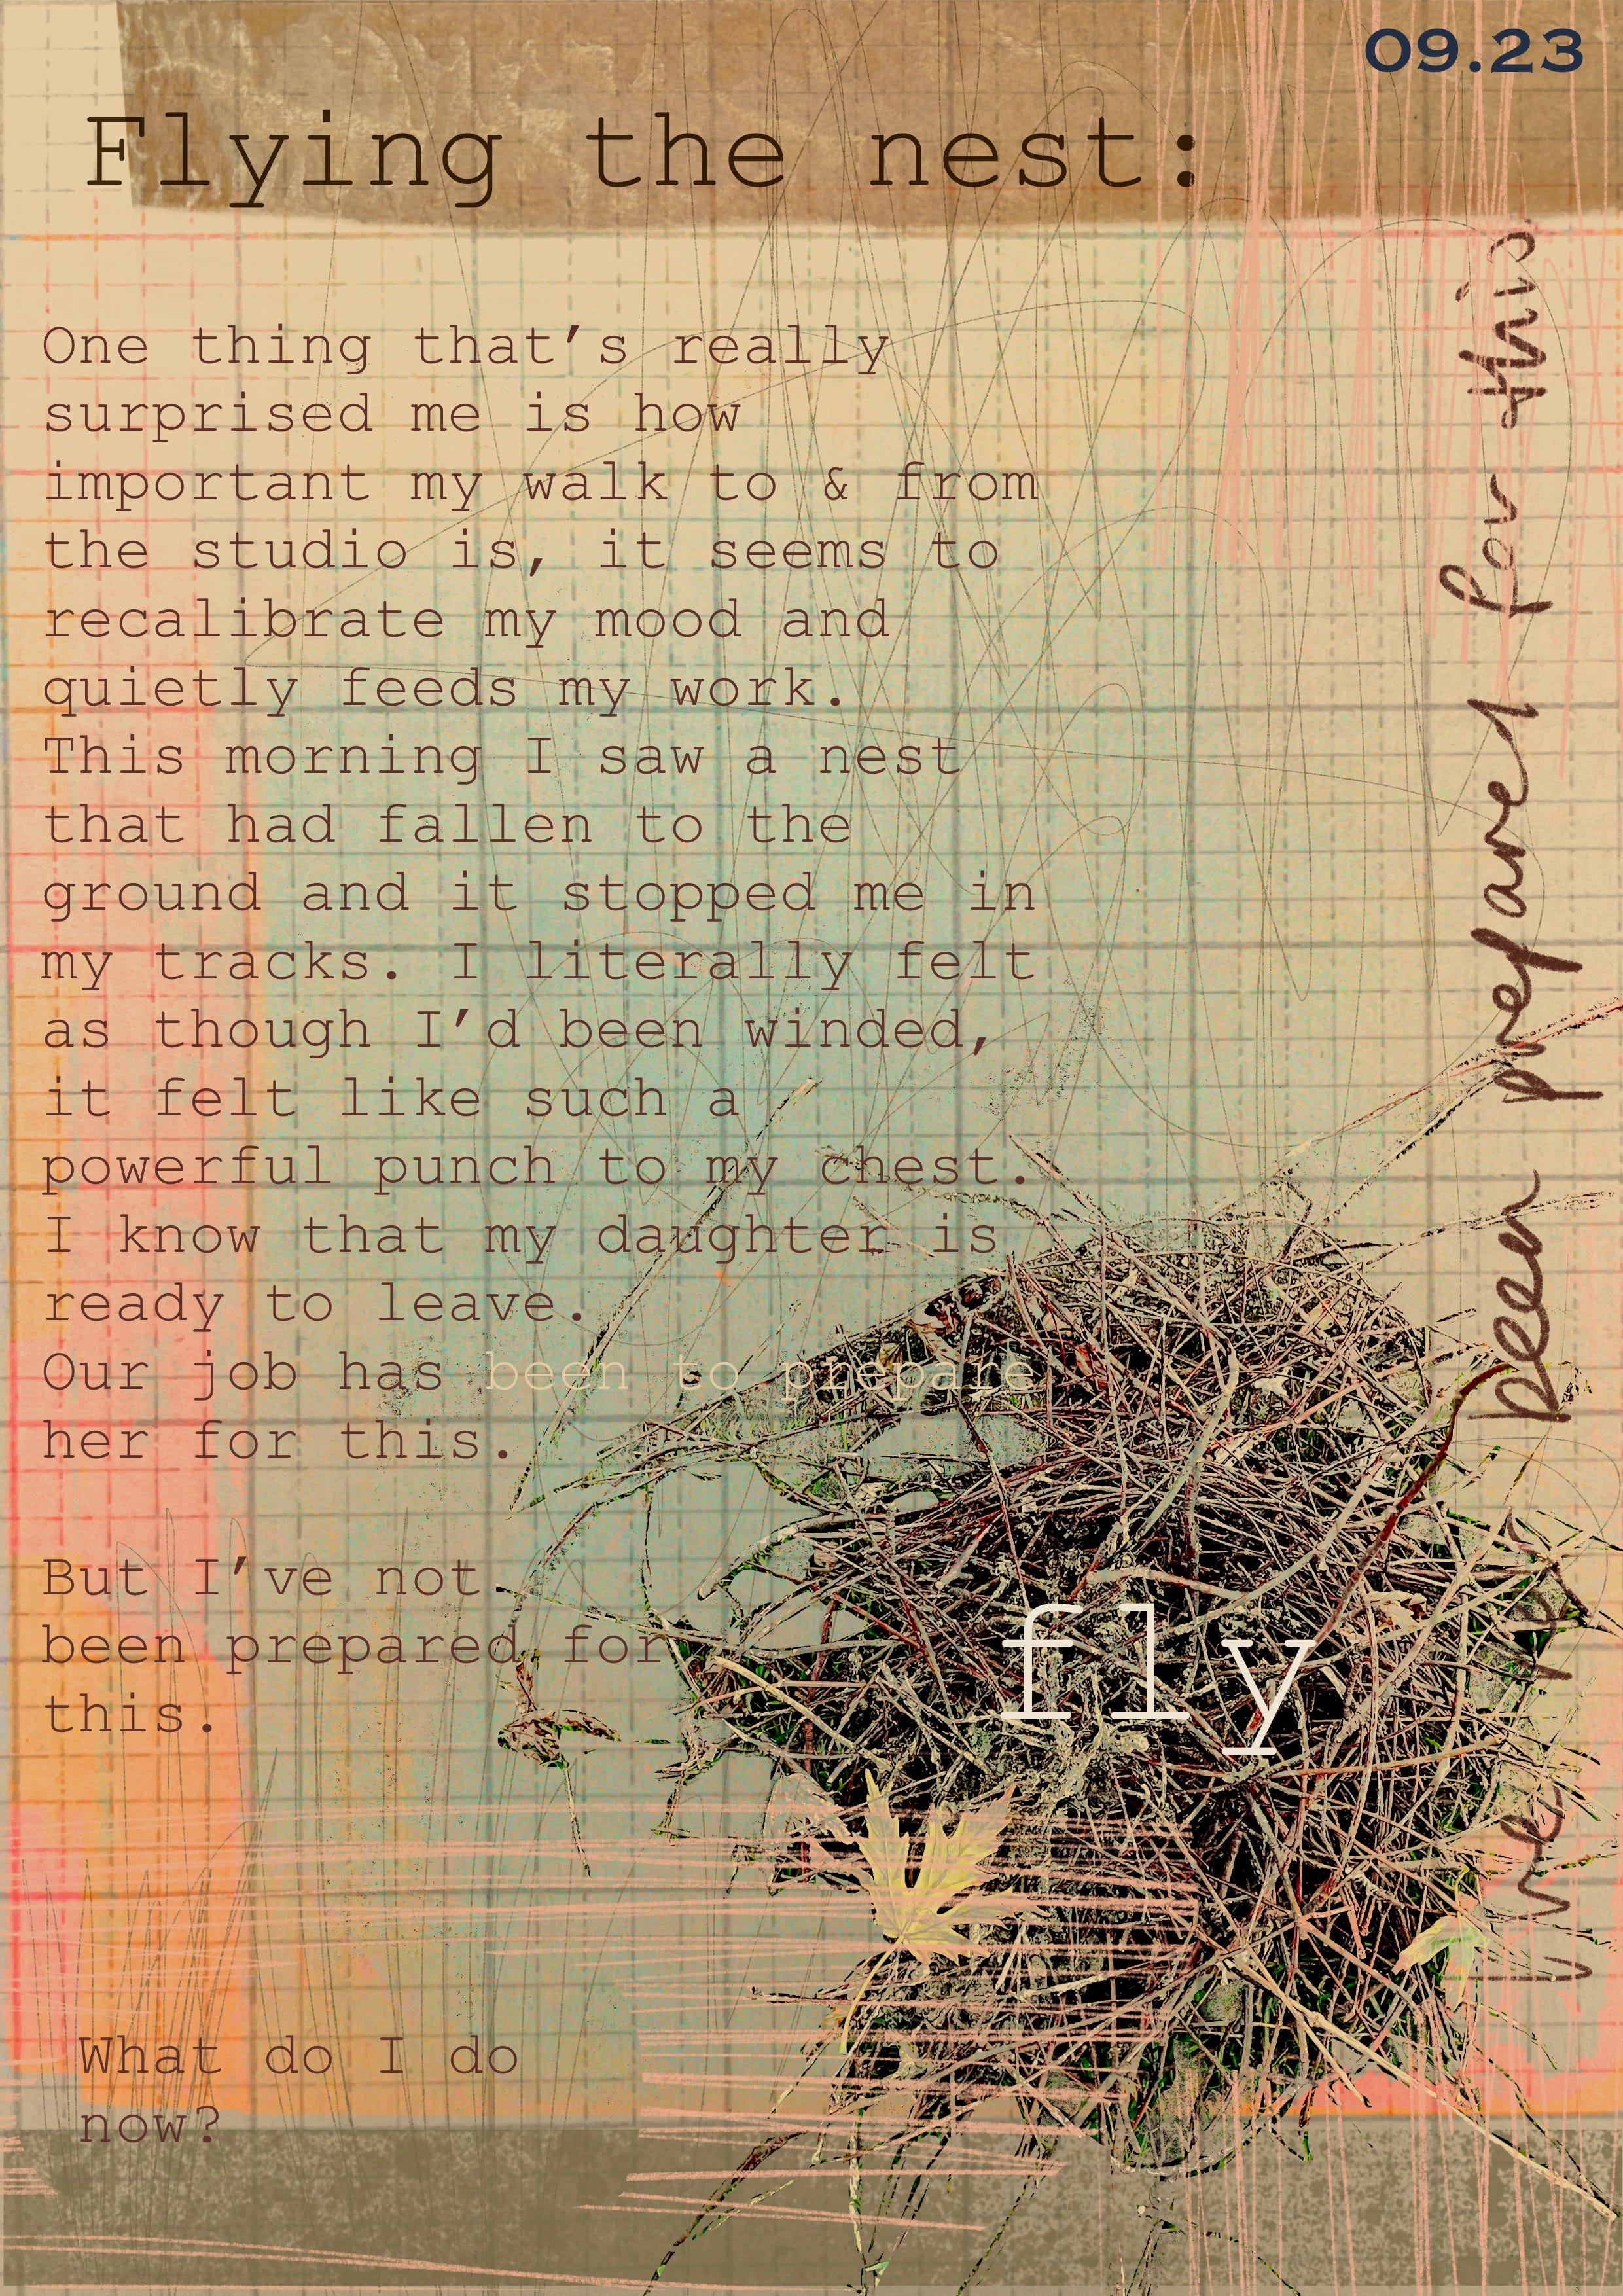 09.23
Flying the nest:
One thing that’s really
surprised me is how
important my walk to & from
the studio is, it seems to
recalibrate my mood and
quietly feeds my work.
This morning I saw a nest
that had fallen to the
ground and it stopped me in
my tracks. I literally felt
as though I’d been winded,
it felt like such a
powerful punch to my chest.
I know that my daughter is
ready to leave.
Our job has been to prepare
her for this.
But I’ve not
been prepared for
this.
fly
What do I do
now?
I've not been prepared for this